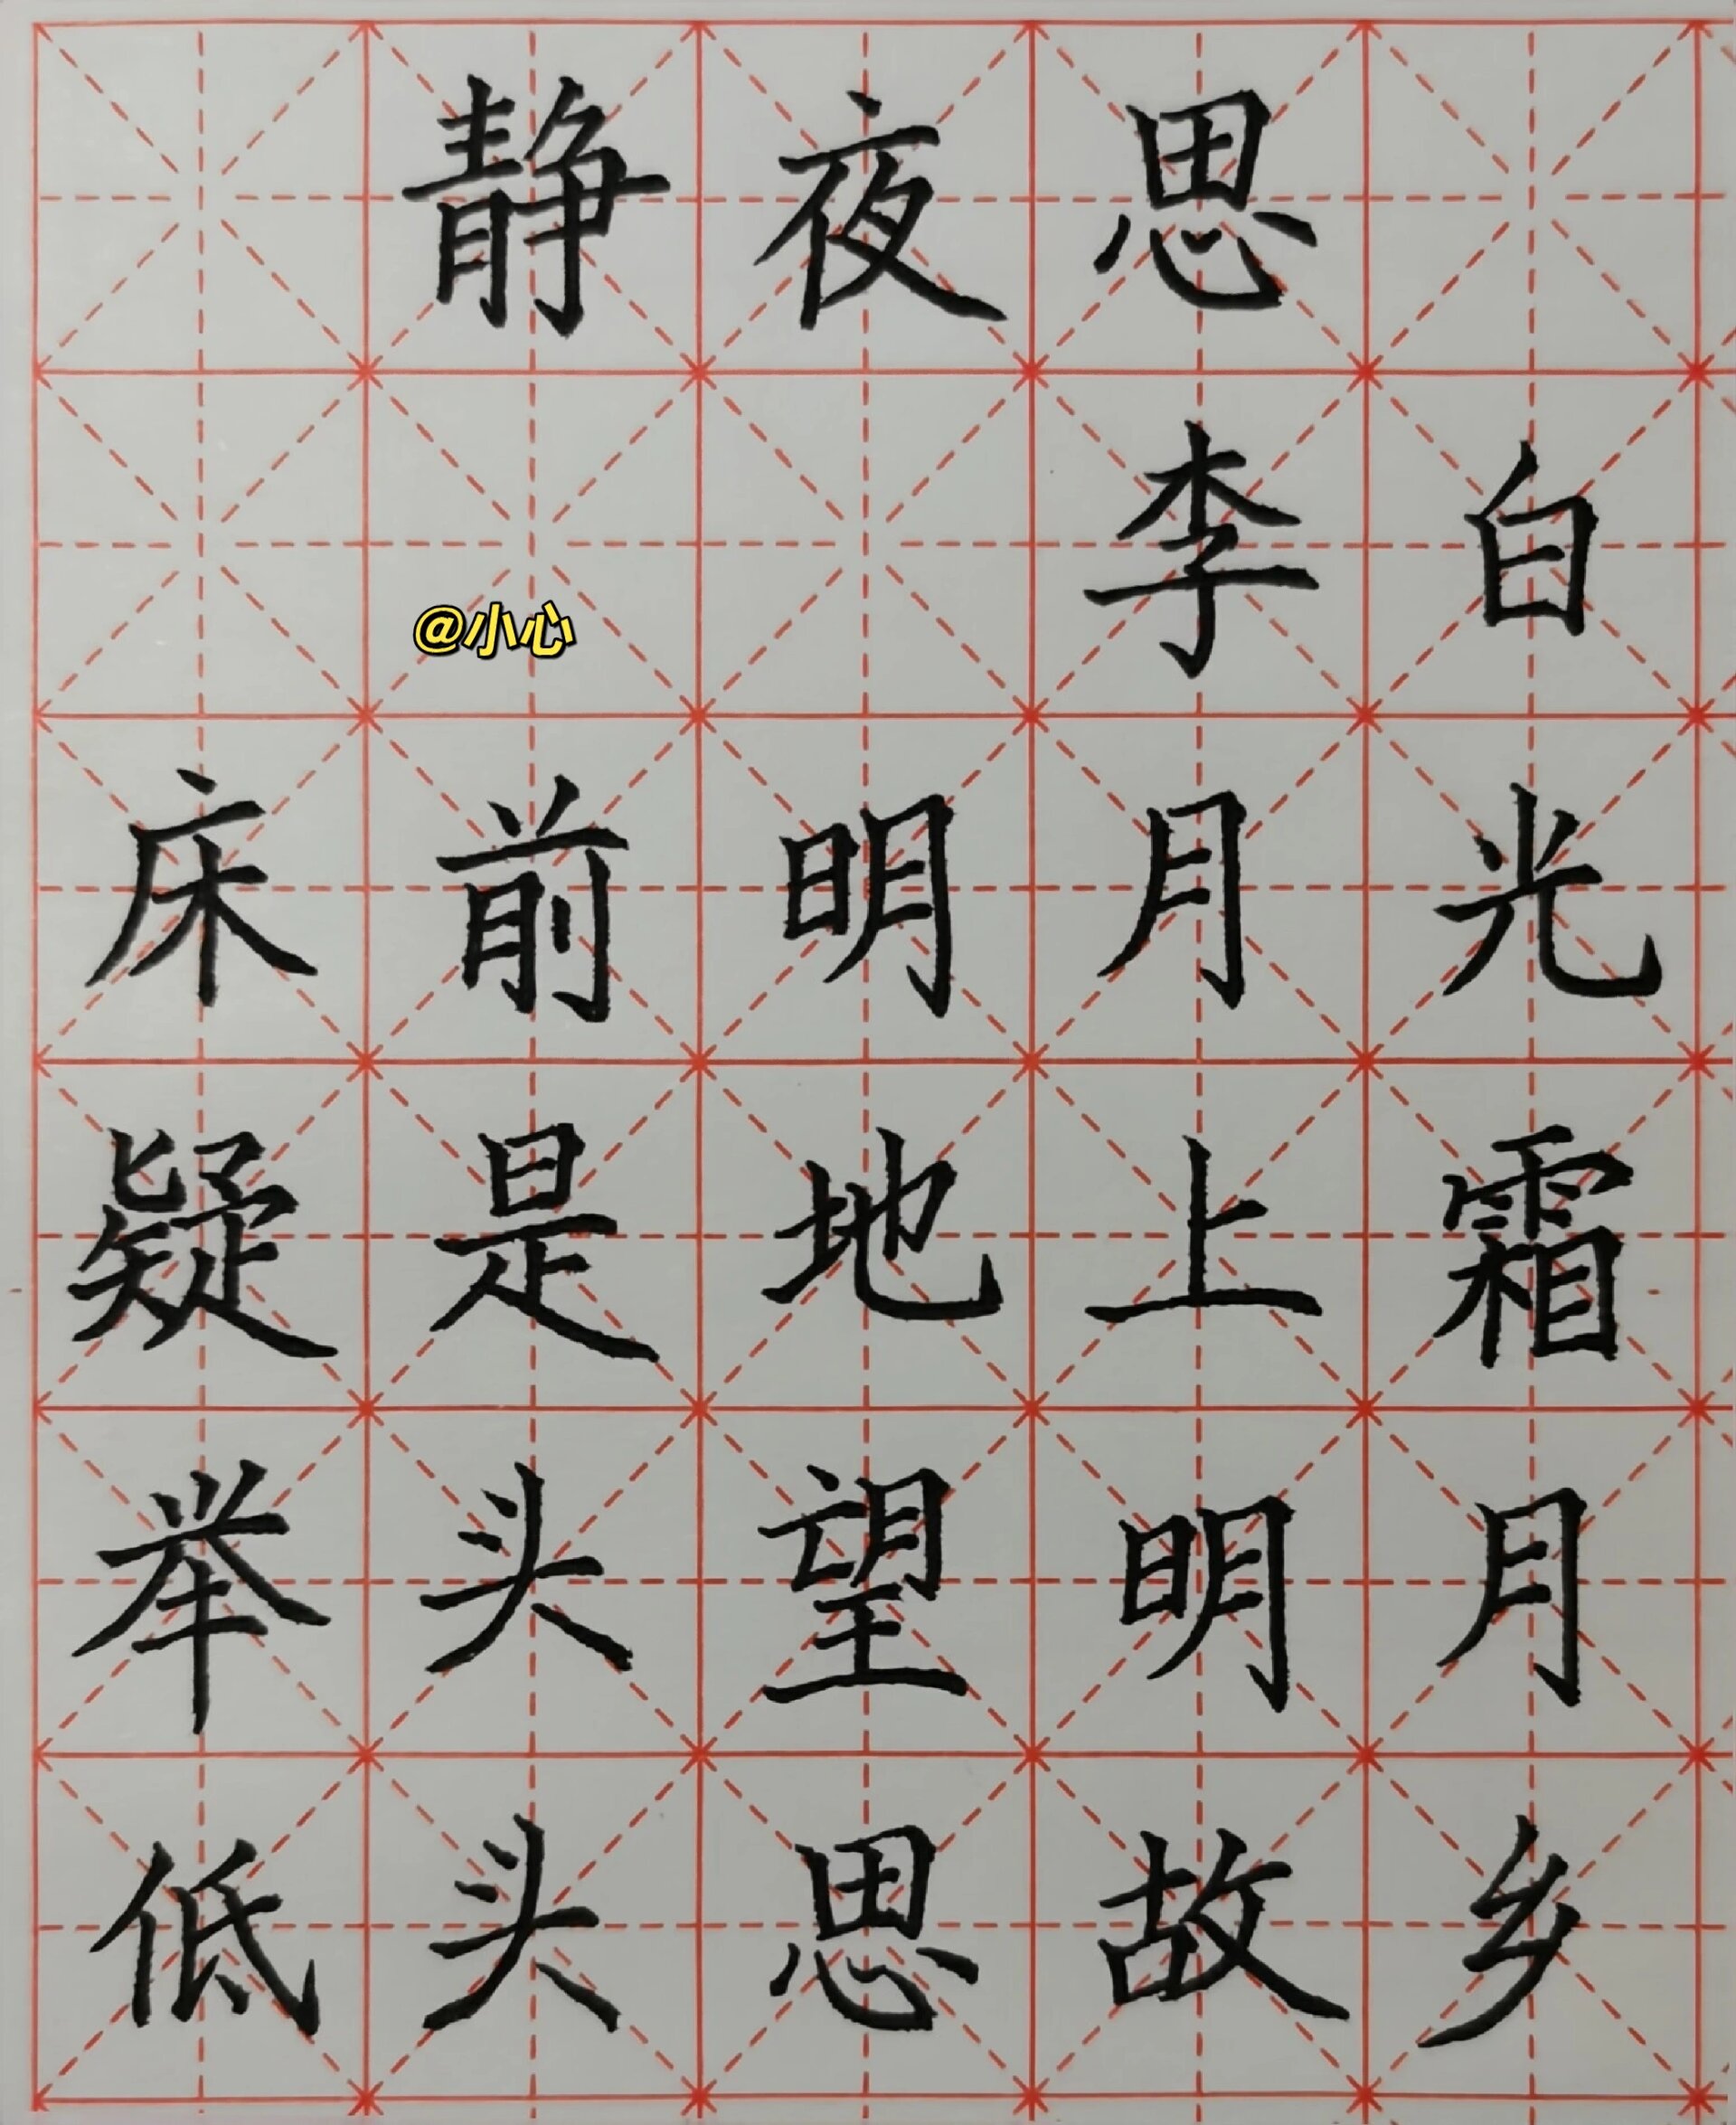 静夜思
李白
@小心
床前明月光
疑是地上霜
举头望明月
低头思故乡